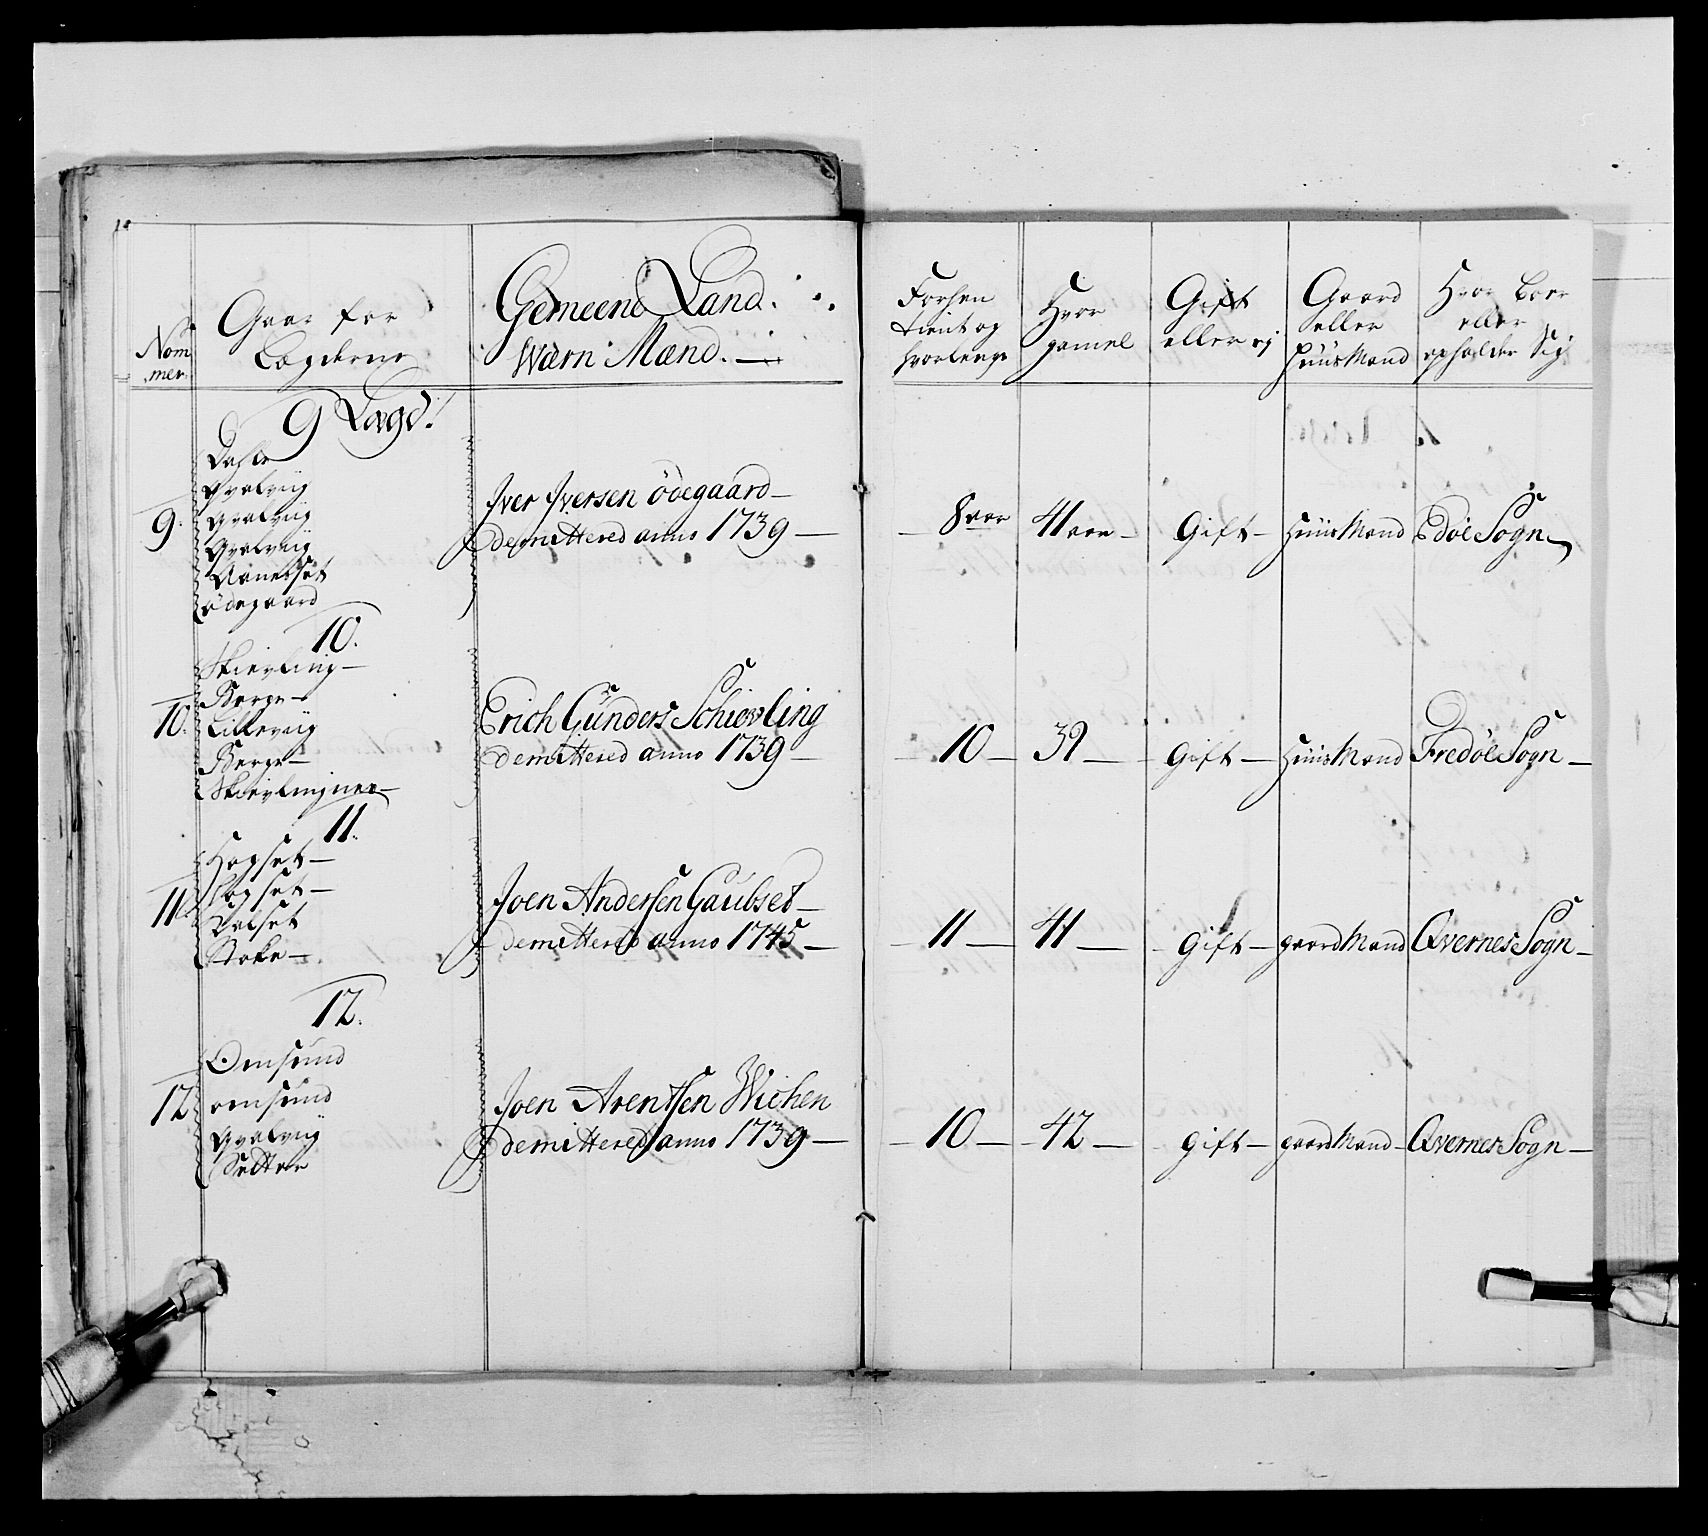 Nom
mer
Gaar for
Lægderne
Gemeene Land
Wærn Mænd.
Forhen
tient og
hvorlenge
Hvor
gamel
Gift
eller ej
Gaard
eller
Huus Mand
Hvor boer
eller
opholder Sig
9 Lægd.
Dahle
Qvalviig
Qvalviig
Qvalviig
ødegaard
9.
Iver Iversen ødegaard
demittered anno 1739
8 aar
41 aar
Gift
Huus Mand
Edøe Sogn
10.
Skievling
Berge
Lilleviig
Berge
10.
Erich Gunders Schiewling
demittered anno 1739
10
39
Gift
Huus Mand
Fredøe Sogn
11.
Hogset
Stoke
11.
Joen Andersen Gaúbset
demittered anno 1745
11
41
Gift
gaard Mand
Qvernes Sogn
12.
Omsund
omsund
Qvalviig
12
Joen Arentsen Wichen
demittered anno 1739
10
42
Gift
gaard Mand
Qvernes Sogn